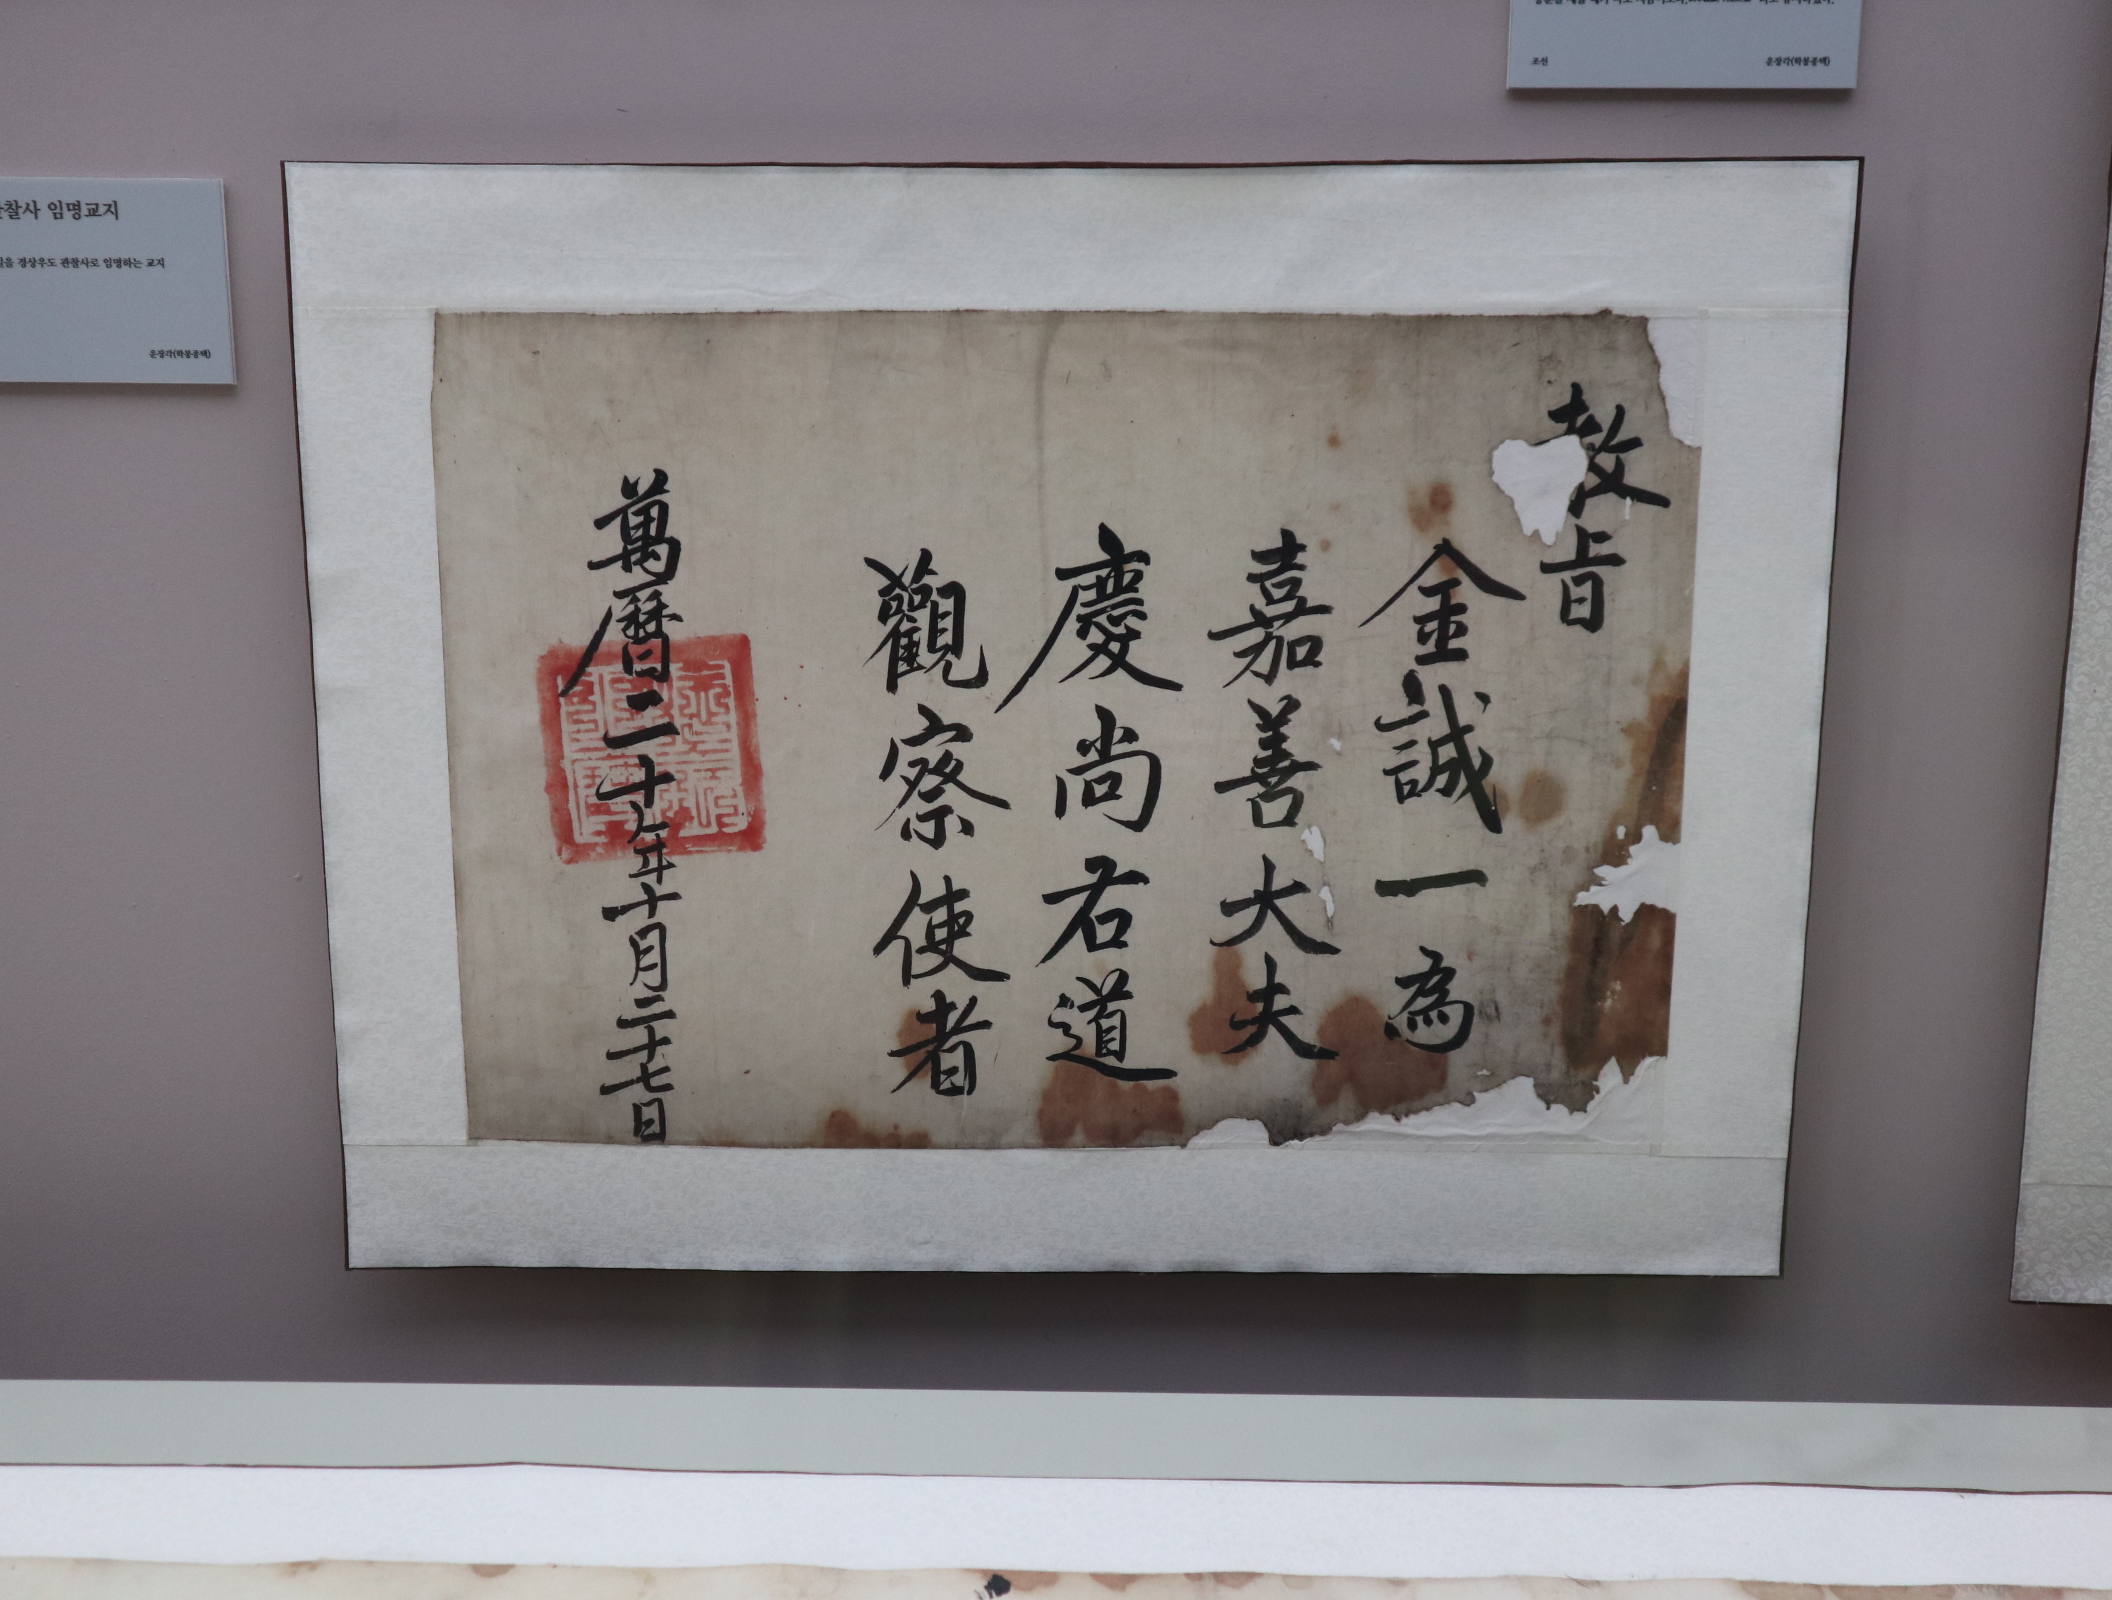 敎旨
金誠一為
嘉善大夫
慶尚右道
觀察使者
萬曆二十年十月二十七日
찰사 임명교지
경상우도 관찰사로 임명하는 교지
운장각(학봉종택)
조선
운장각(학봉종택)